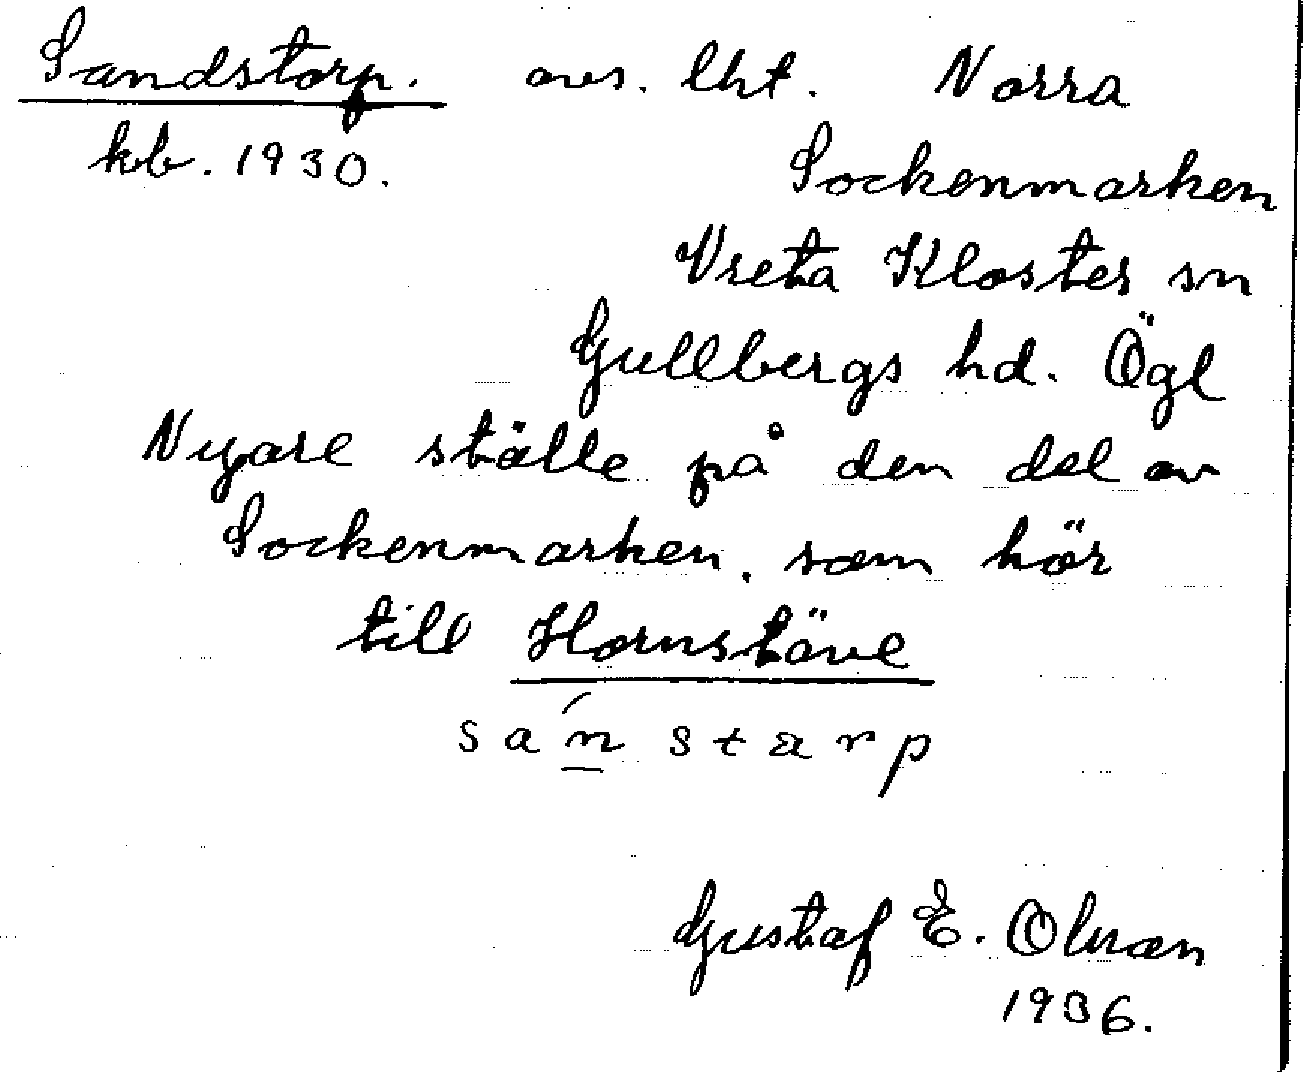 Sandstorp. avs. lht. Norra
kb. 1930. Sockenmarken
Vreta Kloster sn
Gullbergs hd. Ögl
Nyare ställe på den del av
Sockenmarken, som hör
till Hornstäve
san starp
Gustaf E. Olson
1936.